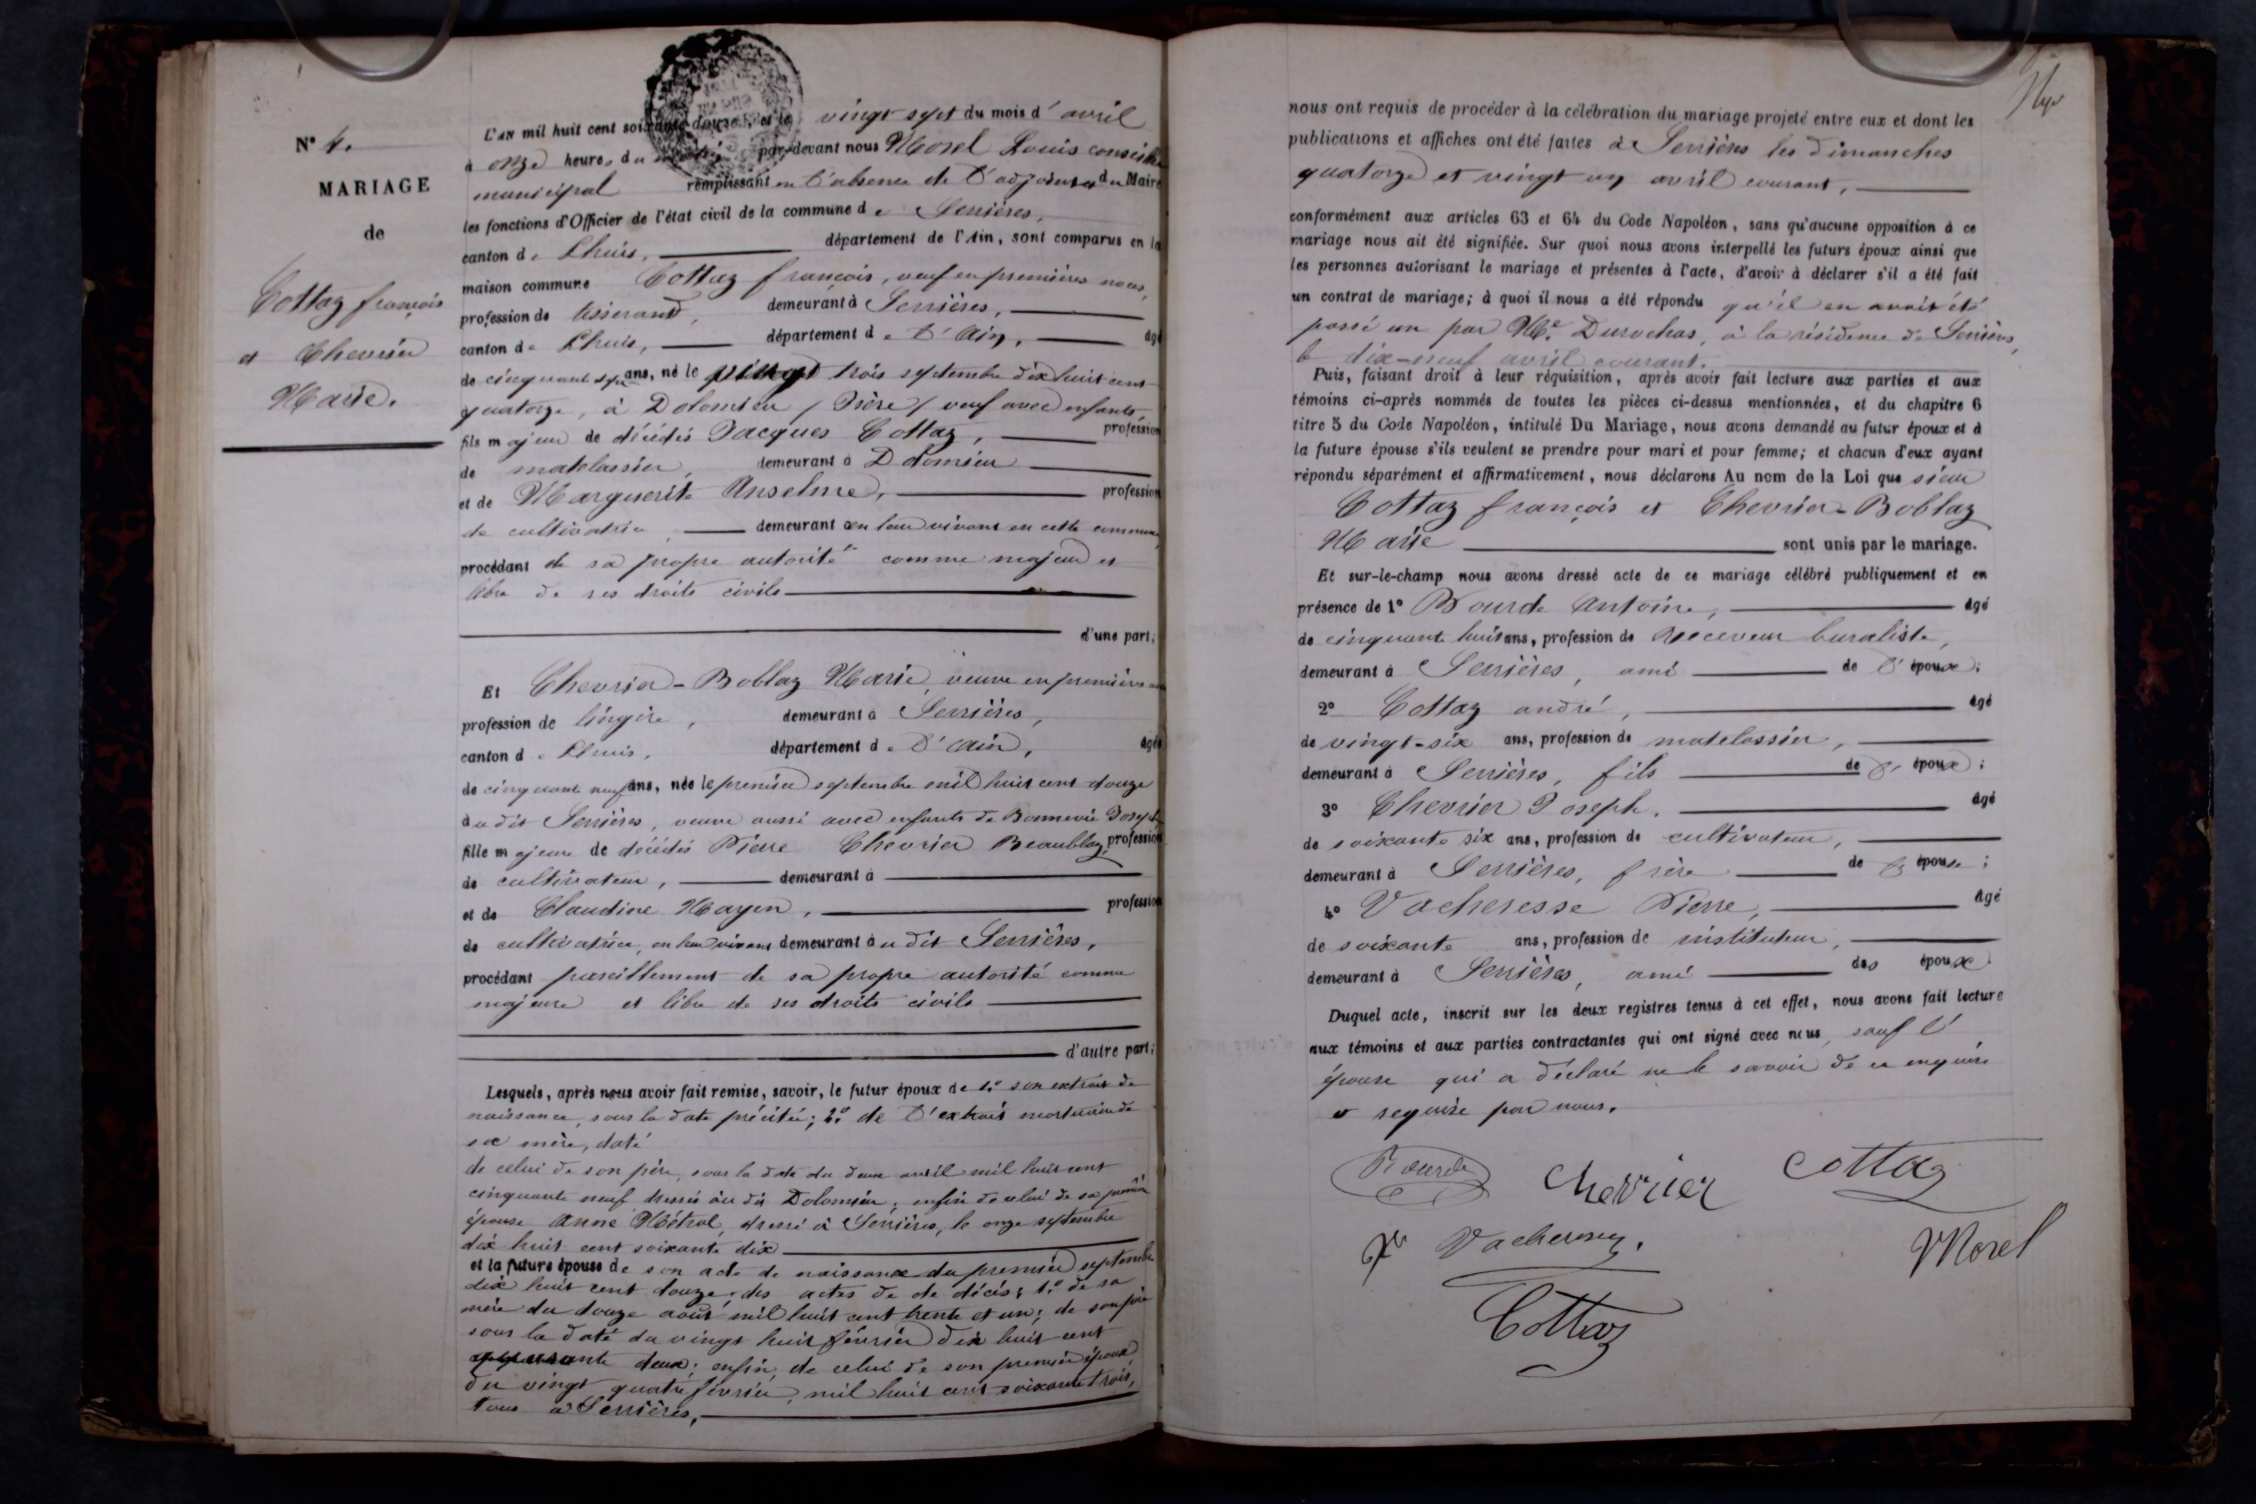 N° 4.
MARIAGE
de
Cottaz françois
et Chevrier
Marie.
L'AN mil huit cent soixante-douze, et le vingt sept du mois d'avril
à onze heures du matin par-devant nous Morel Louis conseiller
municipal remplissant en l'absence de l'adjoint et du Maire
les fonctions d'Officier de l'état civil de la commune de Serrières,
canton de Lhuis, département de l'Ain, sont comparus en la
maison commune Cottaz françois, veuf en premières noces,
profession de tisserand, demeurant à Serrières,
canton de Lhuis, département de l'Ain, âgé
de cinquante sept ans, né le vingt trois septembre dix huit cent
quatorze, à Dolomieu / Isère / veuf avec enfants,
fils majeur de décédés Jacques Cottaz, profession
de matelassier, demeurant à Dolomieu
et de Marguerite Anselme, profession
de cultivatrice, demeurant en leur vivant en cette commune,
procédant de sa propre autorité comme majeur et
libre de ses droits civils
d'une part;
Et Chevrier-Boblaz Marie, veuve en premières
profession de lingère, demeurant à Serrières,
canton de Lhuis, département de l'Ain, âgée
de cinquante neuf ans, née le premier septembre mil huit cent douze
au dit Serrières, veuve aussi avec enfants de Bonnevie Joseph
fille majeure de décédés Pierre Chevrier Beaublaz, profession
de cultivateur, demeurant à
et de Claudine Mayen, profession
de cultivatrice, en leur vivant demeurant au dit Serrières,
procédant pareillement de sa propre autorité comme
majeure et libre de ses droits civils
d'autre part;
Lesquels, après nous avoir fait remise, savoir, le futur époux de 1° son extrait de
naissance, sous la date précitée; 2° de l'extrait mortuaire de
sa mère, daté
de celui de son père, sous la date du deux avril mil huit cent
cinquante neuf dressés au dit Dolomieu; enfin de celui de sa première
épouse Anne Métral, dressé à Serrières, le onze septembre
dix huit cent soixante dix
et la future épouse de son acte de naissance du premier septembre
dix huit cent douze, des actes de de décès; 1° de sa
mère du douze août mil huit cent trente et un; de son père
sous la date du vingt huit février dix huit cent
deux; enfin, de celui de son premier époux
du vingt quatre février mil huit cent soixante trois,
tous à Serrières,
nous ont requis de procéder à la célébration du mariage projeté entre eux et dont les
publications et affiches ont été faites à Serrières les dimanches
quatorze et vingt un avril courant,
conformément aux articles 63 et 64 du Code Napoléon, sans qu'aucune opposition à ce
mariage nous ait été signifiée. Sur quoi nous avons interpellé les futurs époux ainsi que
les personnes autorisant le mariage et présentes à l'acte, d'avoir à déclarer s'il a été fait
un contrat de mariage; à quoi il nous a été répondu qu'il en avait été
passé un par Me. Durochas, à la résidence de Serrières,
le dix-neuf avril courant.
Puis, faisant droit à leur réquisition, après avoir fait lecture aux parties et aux
témoins ci-après nommés de toutes les pièces ci-dessus mentionnées, et du chapitre 6
titre 5 du Code Napoléon, intitulé Du Mariage, nous avons demandé au futur époux et à
la future épouse s'ils veulent se prendre pour mari et pour femme; et chacun d'eux ayant
répondu séparément et affirmativement, nous déclarons Au nom de la Loi que sieur
Cottaz françois et Chevrier-Boblaz
Marie sont unis par le mariage.
Et sur-le-champ nous avons dressé acte de ce mariage célébré publiquement et en
présence de 1° Bourde Antoine, âgé
de cinquante huit ans, profession de Receveur buraliste,
demeurant à Serrières, ami de l'époux;
2° Cottaz andré, âgé
de vingt-six ans, profession de matelassier,
demeurant à Serrières, fils de l'époux;
3° Chevrier Joseph, âgé
de soixante six ans, profession de cultivateur,
demeurant à Serrières, frère de l'épouse;
4° Vacheresse Pierre, âgé
de soixante ans, profession de instituteur,
demeurant à Serrières, ami des époux
Duquel acte, inscrit sur les deux registres tenus à cet effet, nous avons fait lecture
aux témoins et aux parties contractantes qui ont signé avec nous, sauf l'
épouse qui a déclaré ne le savoir de ce enquise
et requise par nous.
Bourde Chevrier Cottaz
Vacheresse. Morel
Cottaz